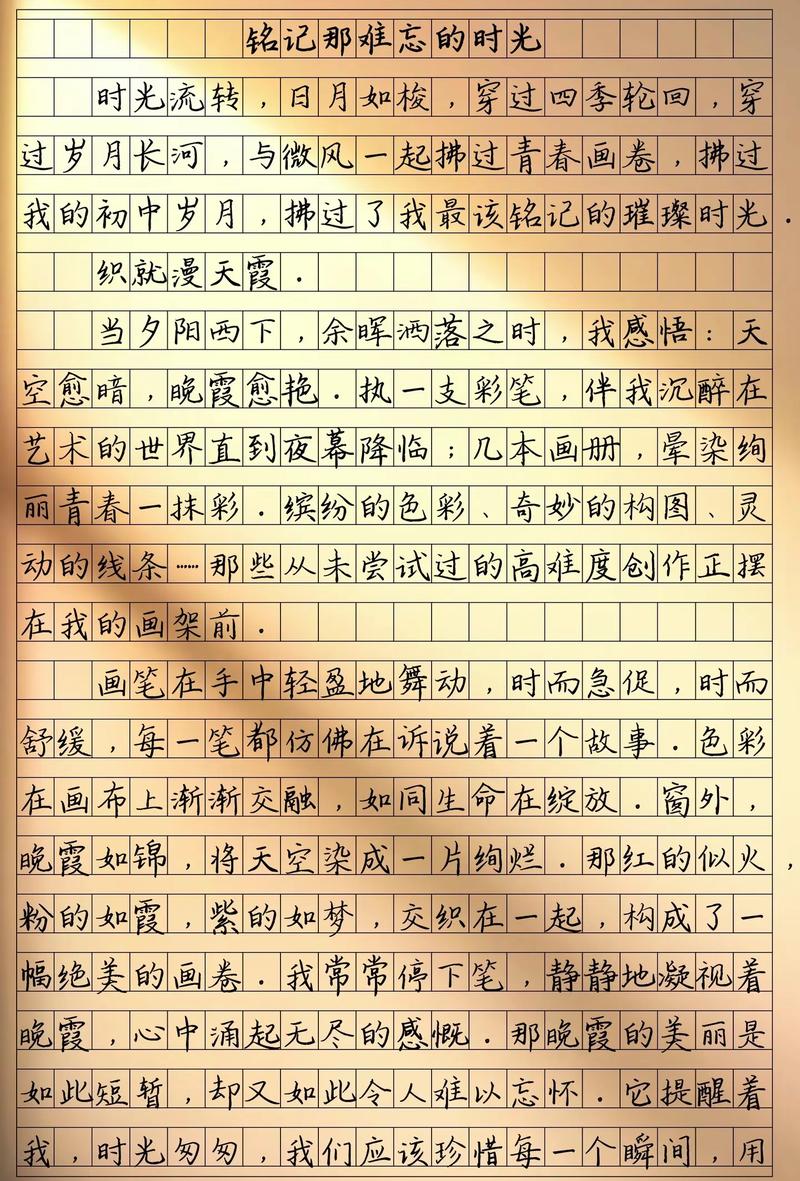 铭记那难忘的时光
时光流转，日月如梭，穿过四季轮回，穿
过岁月长河，与微风一起拂过青春画卷，拂过
我的初中岁月，拂过了我最该铭记的璀璨时光．
织就漫天霞．
当夕阳西下，余晖洒落之时，我感悟：天
空愈暗，晚霞愈艳．执一支彩笔，伴我沉醉在
艺术的世界直到夜幕降临；几本画册，晕染绚
丽青春一抹彩．缤纷的色彩、奇妙的构图、灵
动的线条……那些从未尝试过的高难度创作正摆
在我的画架前．
画笔在手中轻盈地舞动，时而急促，时而
舒缓，每一笔都仿佛在诉说着一个故事．色彩
在画布上渐渐交融，如同生命在绽放．窗外，
晚霞如锦，将天空染成一片绚烂．那红的似火，
粉的如霞，紫的如梦，交织在一起，构成了一
幅绝美的画卷．我常常停下笔，静静地凝视着
晚霞，心中涌起无尽的感慨．那晚霞的美丽是
如此短暂，却又如此令人难以忘怀．它提醒着
我，时光匆匆，我们应该珍惜每一个瞬间，用